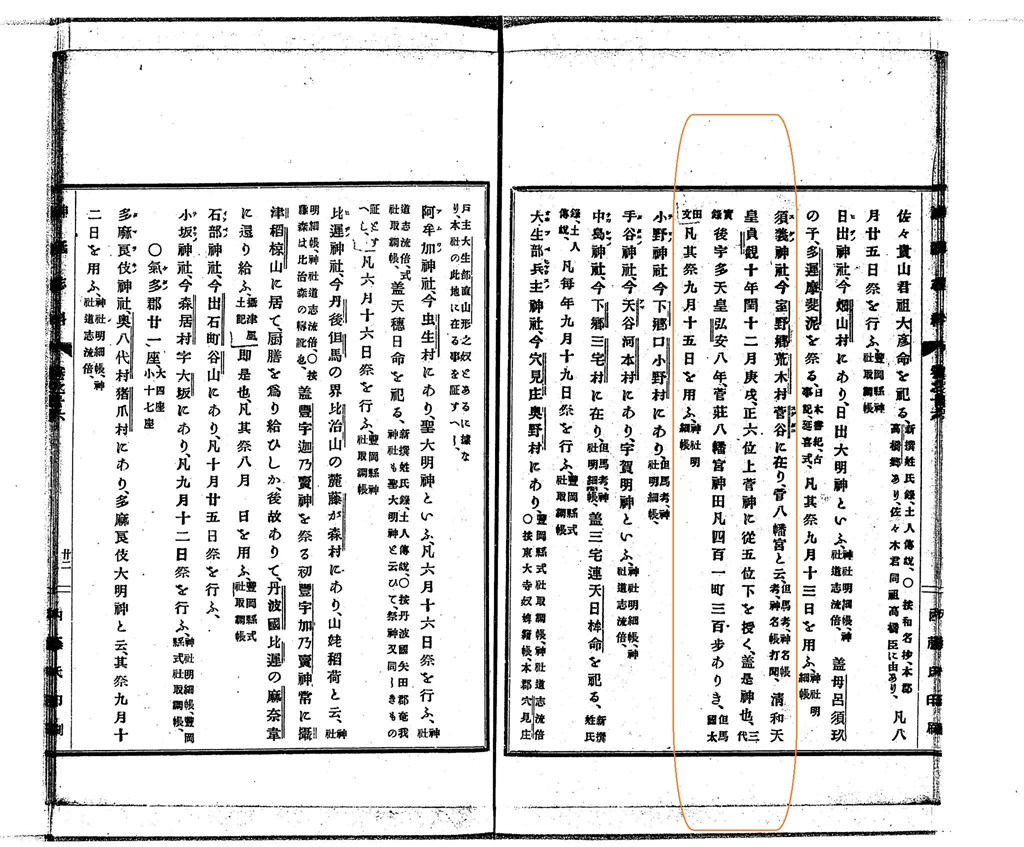 佐々貴山君祖大彦命を祀る、新撰姓氏錄、土人傳說、○按和名抄、本郡高橋郷あり、佐々木君同祖高橋臣に由あり、凡八
月廿五日祭を行ふ、豐岡縣神社取調帳
日出神社、今畑山村にあり、日出大明神といふ、神社明細帳、神社道志流倍、蓋母呂須玖
の子、多遲摩斐泥を祭る、日本書紀、古事記、延喜式、凡其祭九月十三日を用ふ、神社明細帳
須義神社、今室野郷荒木村菅谷に在り、菅八幡宮と云、但馬考、神名帳考、神名帳打聞、淸和天
皇貞觀十年閏十二月庚戌、正六位上菅神に從五位下を授く、蓋是神也、三代
實錄後宇多天皇弘安八年、菅莊八幡宮神田凡四百一町三百歩ありき、但馬國太
田文凡其祭九月十五日を用ふ、神社明細帳
小野神社、今下郷口小野村にあり、但馬考、神社明細帳、
手谷神社、今天谷河本村にあり、宇賀明神といふ、神社明細帳、神社道志流倍、
中島神社、今下郷三宅村に在り、但馬考、神社明細帳、蓋三宅連天日桙命を祀る、新撰姓氏
錄、土人傳說、凡每年九月十九日祭を行ふ、豐岡縣式社取調帳
大生部兵主神社、今穴見庄奧野村にあり、豐岡縣式社取調帳、神社道志流倍○按東大寺奴婢籍帳、本郡穴見庄
戸主大生部直山形之奴とあるに據なり、本社の此地に在る事を証すへし、
阿牟加神社、今虫生村にあり、聖大明神といふ、凡六月十六日祭を行ふ、神社
道志流倍、式社取調帳、蓋天穗日命を祀る、新撰姓氏錄、土人傳說、○按丹波國矢田郡奄我神社も聖大明神と云ひて、祭神又同しきもの
証とすへし、凡六月十六日祭を行ふ、豐岡縣神社取調帳
比遲神社、今丹後但馬の界比治山の麓藤が森村にあり、山姥稻荷と云、神社
明細帳、神社道志流倍○按藤森は比治森の轉訛也、蓋豐宇迦乃賣神を祭る初豐宇加乃賣神常に攝
津稻椋山に居て、厨膳を爲り給ひしか、後故ありて、丹波國比遲の麻奈韋
に還り給ふ、攝津風土記即是也凡其祭八月　日を用ふ、豐岡縣式社取調帳
石部神社、今出石町谷山にあり、凡十月廿五日祭を行ふ、
小坂神社、今森居村字大坂にあり、凡九月十二日祭を行ふ神社明細帳、豐岡縣式社取調帳、
○氣多郡廿一座大四座小十七座
多麻良伎神社、奧八代村猪爪村にあり、多麻良伎大明神と云、其祭九月十
二日を用ふ、神社明細帳、神社道志流倍、
廿二